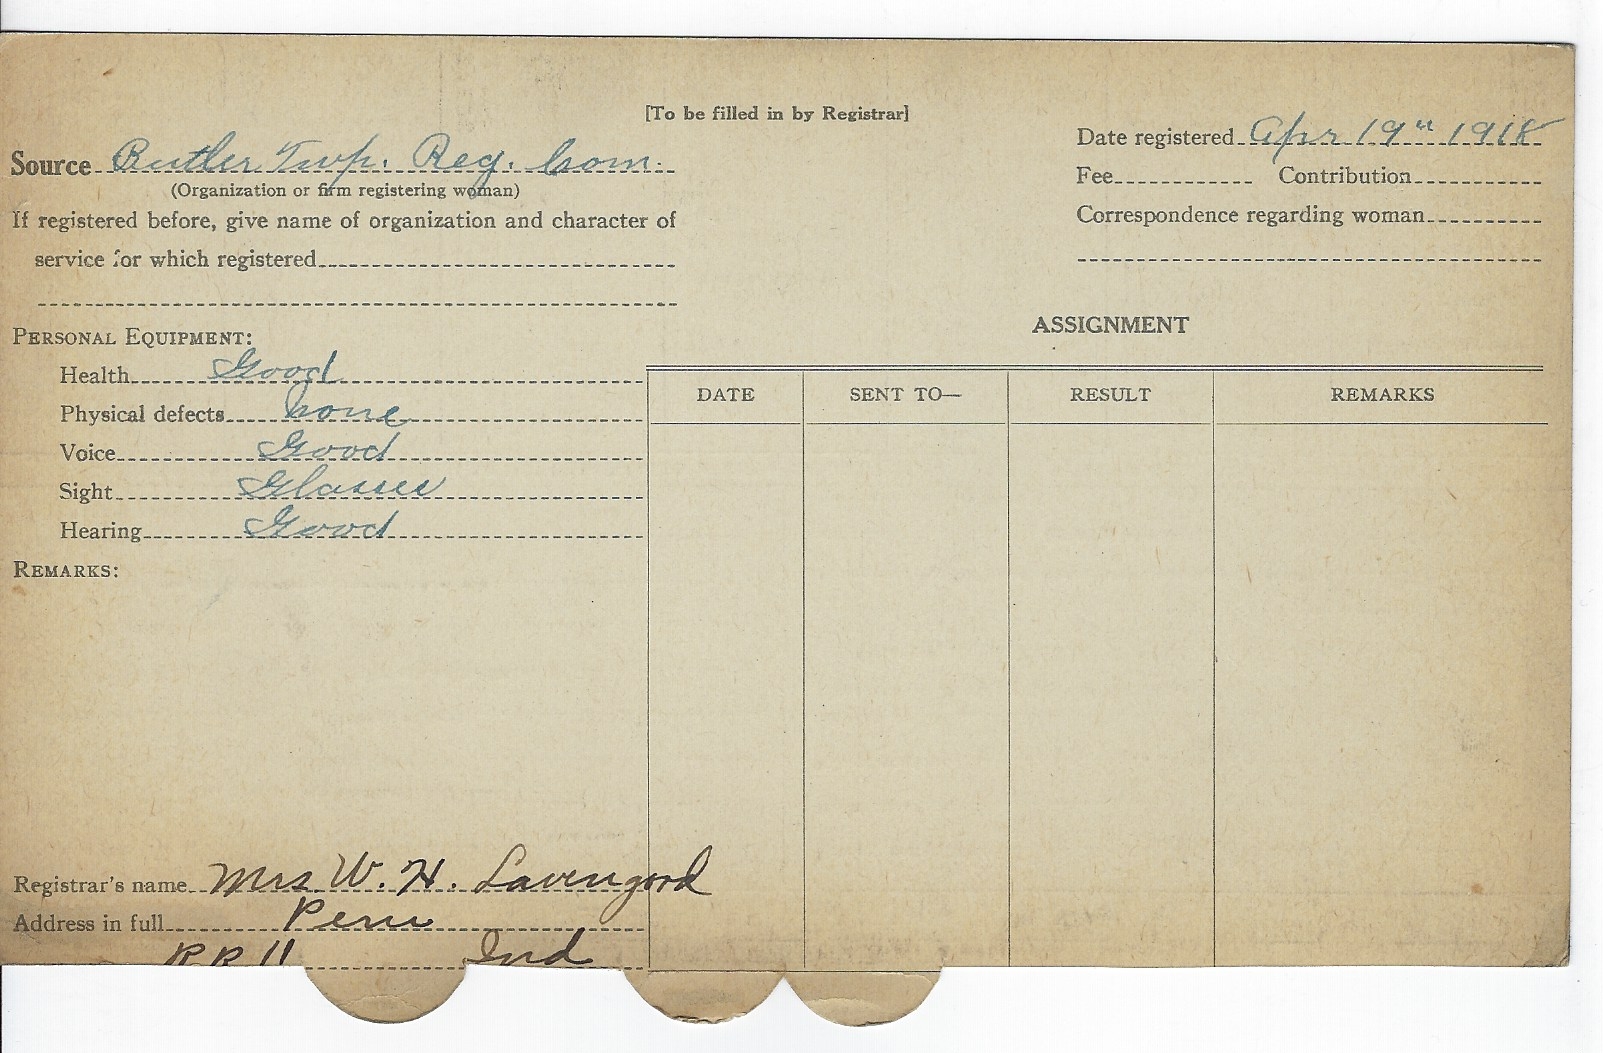 [To be filled in by Registrar]
Source Butler Twp. Reg. Com.
(Organization or firm registering woman)
If registered before, give name of organization and character of
service for which registered
Date registered Apr 19" 1918
Fee Contribution
Correspondence regarding woman
PERSONAL EQUIPMENT:
Health Good
Physical defects none
Voice Good
Sight Glasses
Hearing Good
REMARKS:
ASSIGNMENT
DATE SENT TO— RESULT REMARKS
Registrar's name Mrs. W. H. Lavengord
Address in full Peru
RR 11 Ind